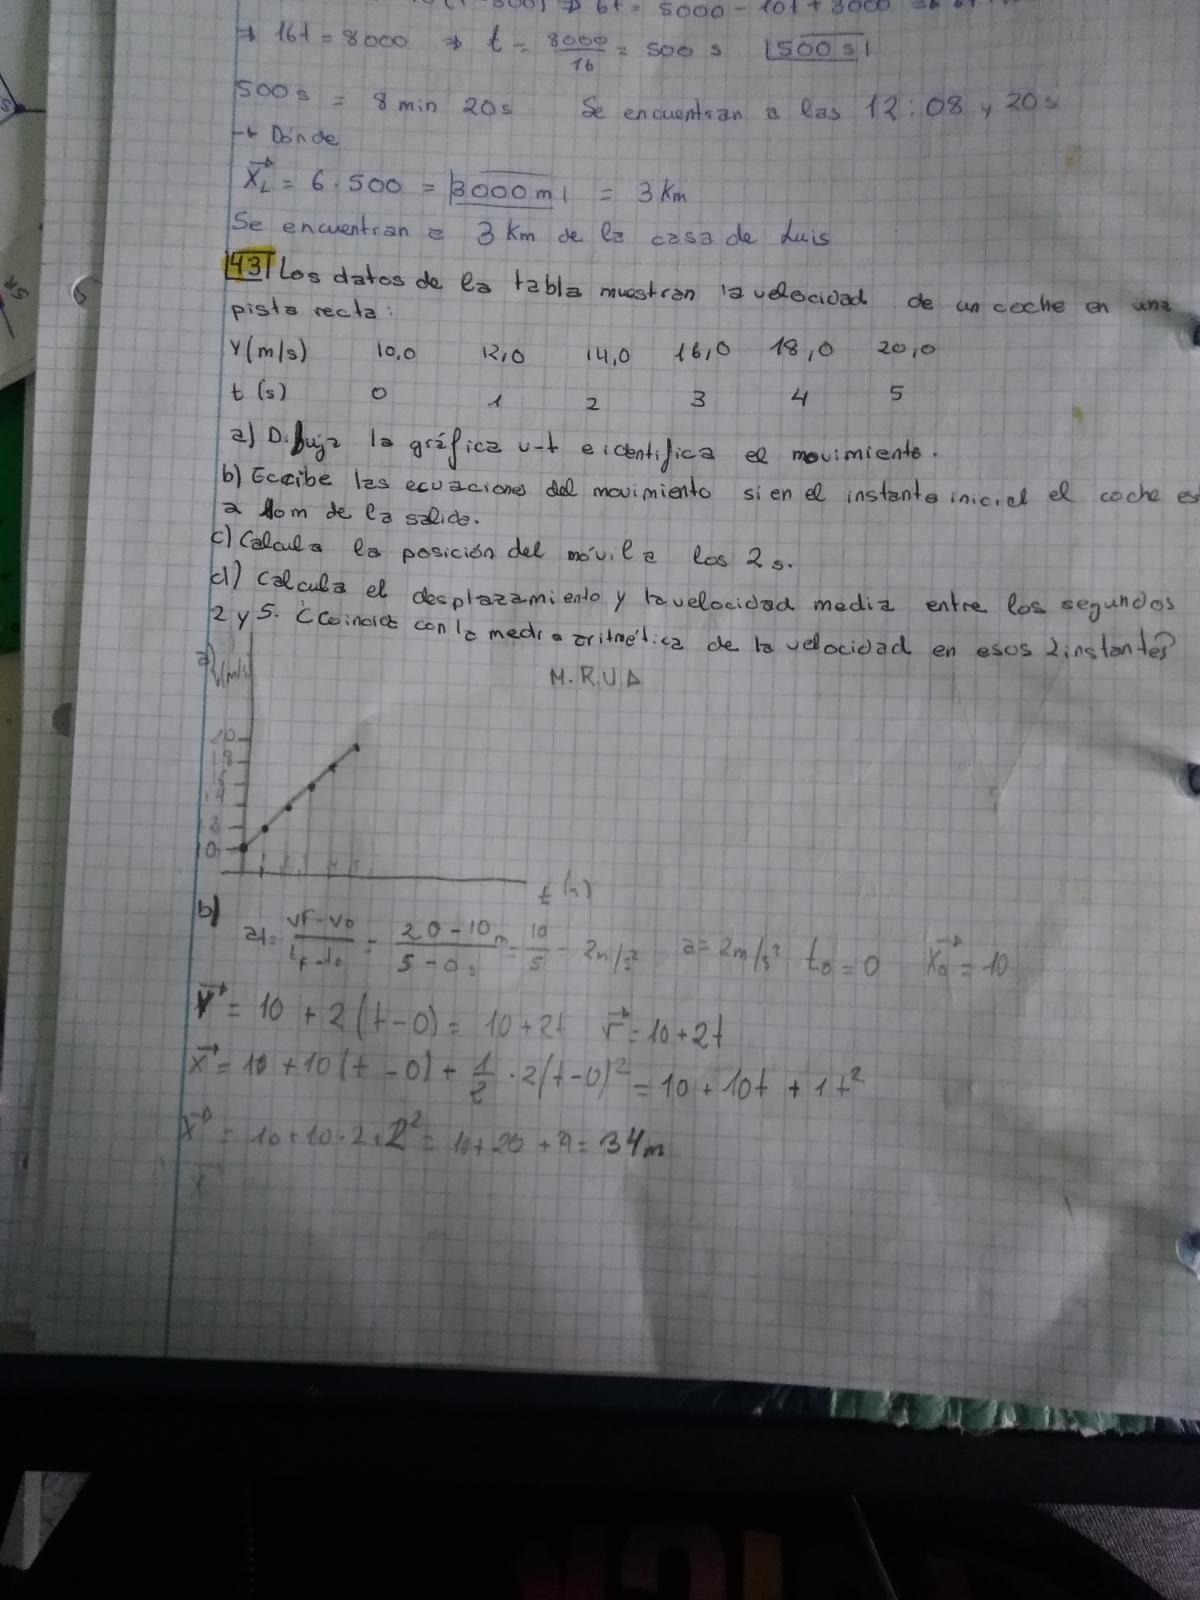 6t = 5000 - 10t + 3000
⇒ 16t = 8000 ⇒ t = 8000/16 = 500 s |500 s|
500 s = 8 min 20 s Se encuentran a las 12:08 y 20 s
→ Dónde
X⃗L = 6 · 500 = |3000 m| = 3 Km
Se encuentran a 3 Km de la casa de Luis
43| Los datos de la tabla muestran la velocidad de un coche en una
pista recta:
v (m/s) 10,0 12,0 14,0 16,0 18,0 20,0
t (s) 0 1 2 3 4 5
a) Dibuja la gráfica v-t e identifica el movimiento.
b) Escribe las ecuaciones del movimiento si en el instante inicial el coche es
a 10m de la salida.
c) Calcula la posición del móvil a los 2 s.
d) Calcula el desplazamiento y la velocidad media entre los segundos
2 y 5. ¿Coincide con la media aritmética de la velocidad en esos 2 instantes?
a) v(m/s) M.R.U.A
10
t (s)
b) a = vF - v0 / tF - t0 = 20 - 10 m / 5 - 0 s = 10/5 = 2m/s² a = 2m/s² t0 = 0 X⃗0 = 10
V⃗ = 10 + 2(t-0) = 10 + 2t v⃗ = 10 + 2t
X⃗ = 10 + 10(t - 0) + 1/2 · 2(t-0)² = 10 + 10t + 1t²
X⃗ = 10 + 10·2 + 2² = 10 + 20 + 4 = 34m
X